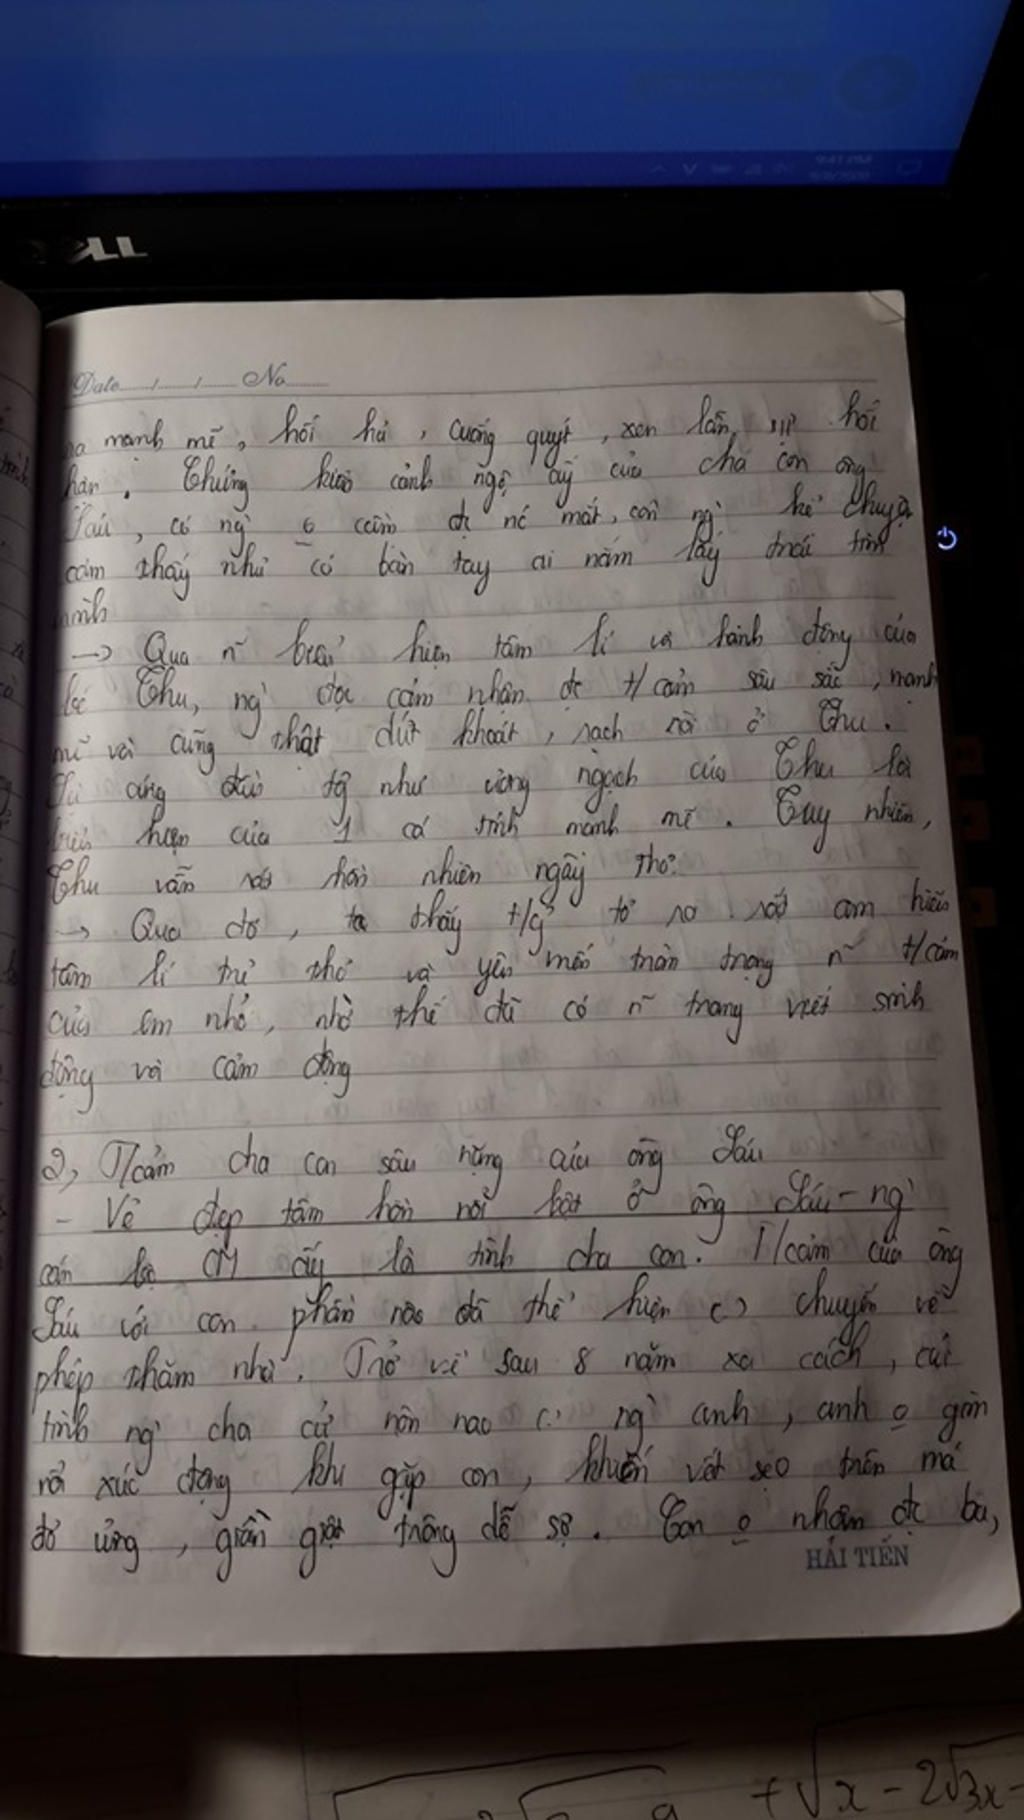 DELL
Date...../...../..... No.......
mạnh mẽ, hối hả, cuống quýt, xen lẫn sự hối
hận. Chứng kiến cảnh ngộ ấy của cha con ông
Sáu, có ng` o cầm đc nc mắt, còn ng` kể chuyện
cảm thấy như có bàn tay ai nắm lấy trái tim
mình
-> Qua n~ biểu hiện tâm lí và hành động của
bé Thu, ng` đọc cảm nhận đc t/cảm sâu sắc, mạnh
mẽ và cũng thật dứt khoát, rạch ròi ở Thu.
Sự cứng đầu tg như ương ngạch của Thu là
biểu hiện của 1 cá tính mạnh mẽ. Tuy nhiên,
Thu vẫn rất hồn nhiên ngây thơ.
-> Qua đó, ta thấy t/g tỏ ra rất am hiểu
tâm lí trẻ thơ và yêu mến trân trọng n~ t/cảm
của em nhỏ, nhờ thế đã có n~ trang viết sinh
động và cảm động
2, T/cảm cha con sâu nặng của ông Sáu
- Vẻ đẹp tâm hồn nổi bật ở ông Sáu - ng`
cán bộ CM ấy là tình cha con. T/cảm của ông
Sáu với con phần nào đã thể hiện () chuyến về
phép thăm nhà. Trở về sau 8 năm xa cách, cái
tình ng` cha cứ nôn nao () ng` anh, anh o gìm
nổi xúc động khi gặp con, khiến vết sẹo trên má
đỏ ửng, giần giật trông dễ sợ. Con o nhận đc ba,
HẢI TIẾN
+ √x - 2√3x -